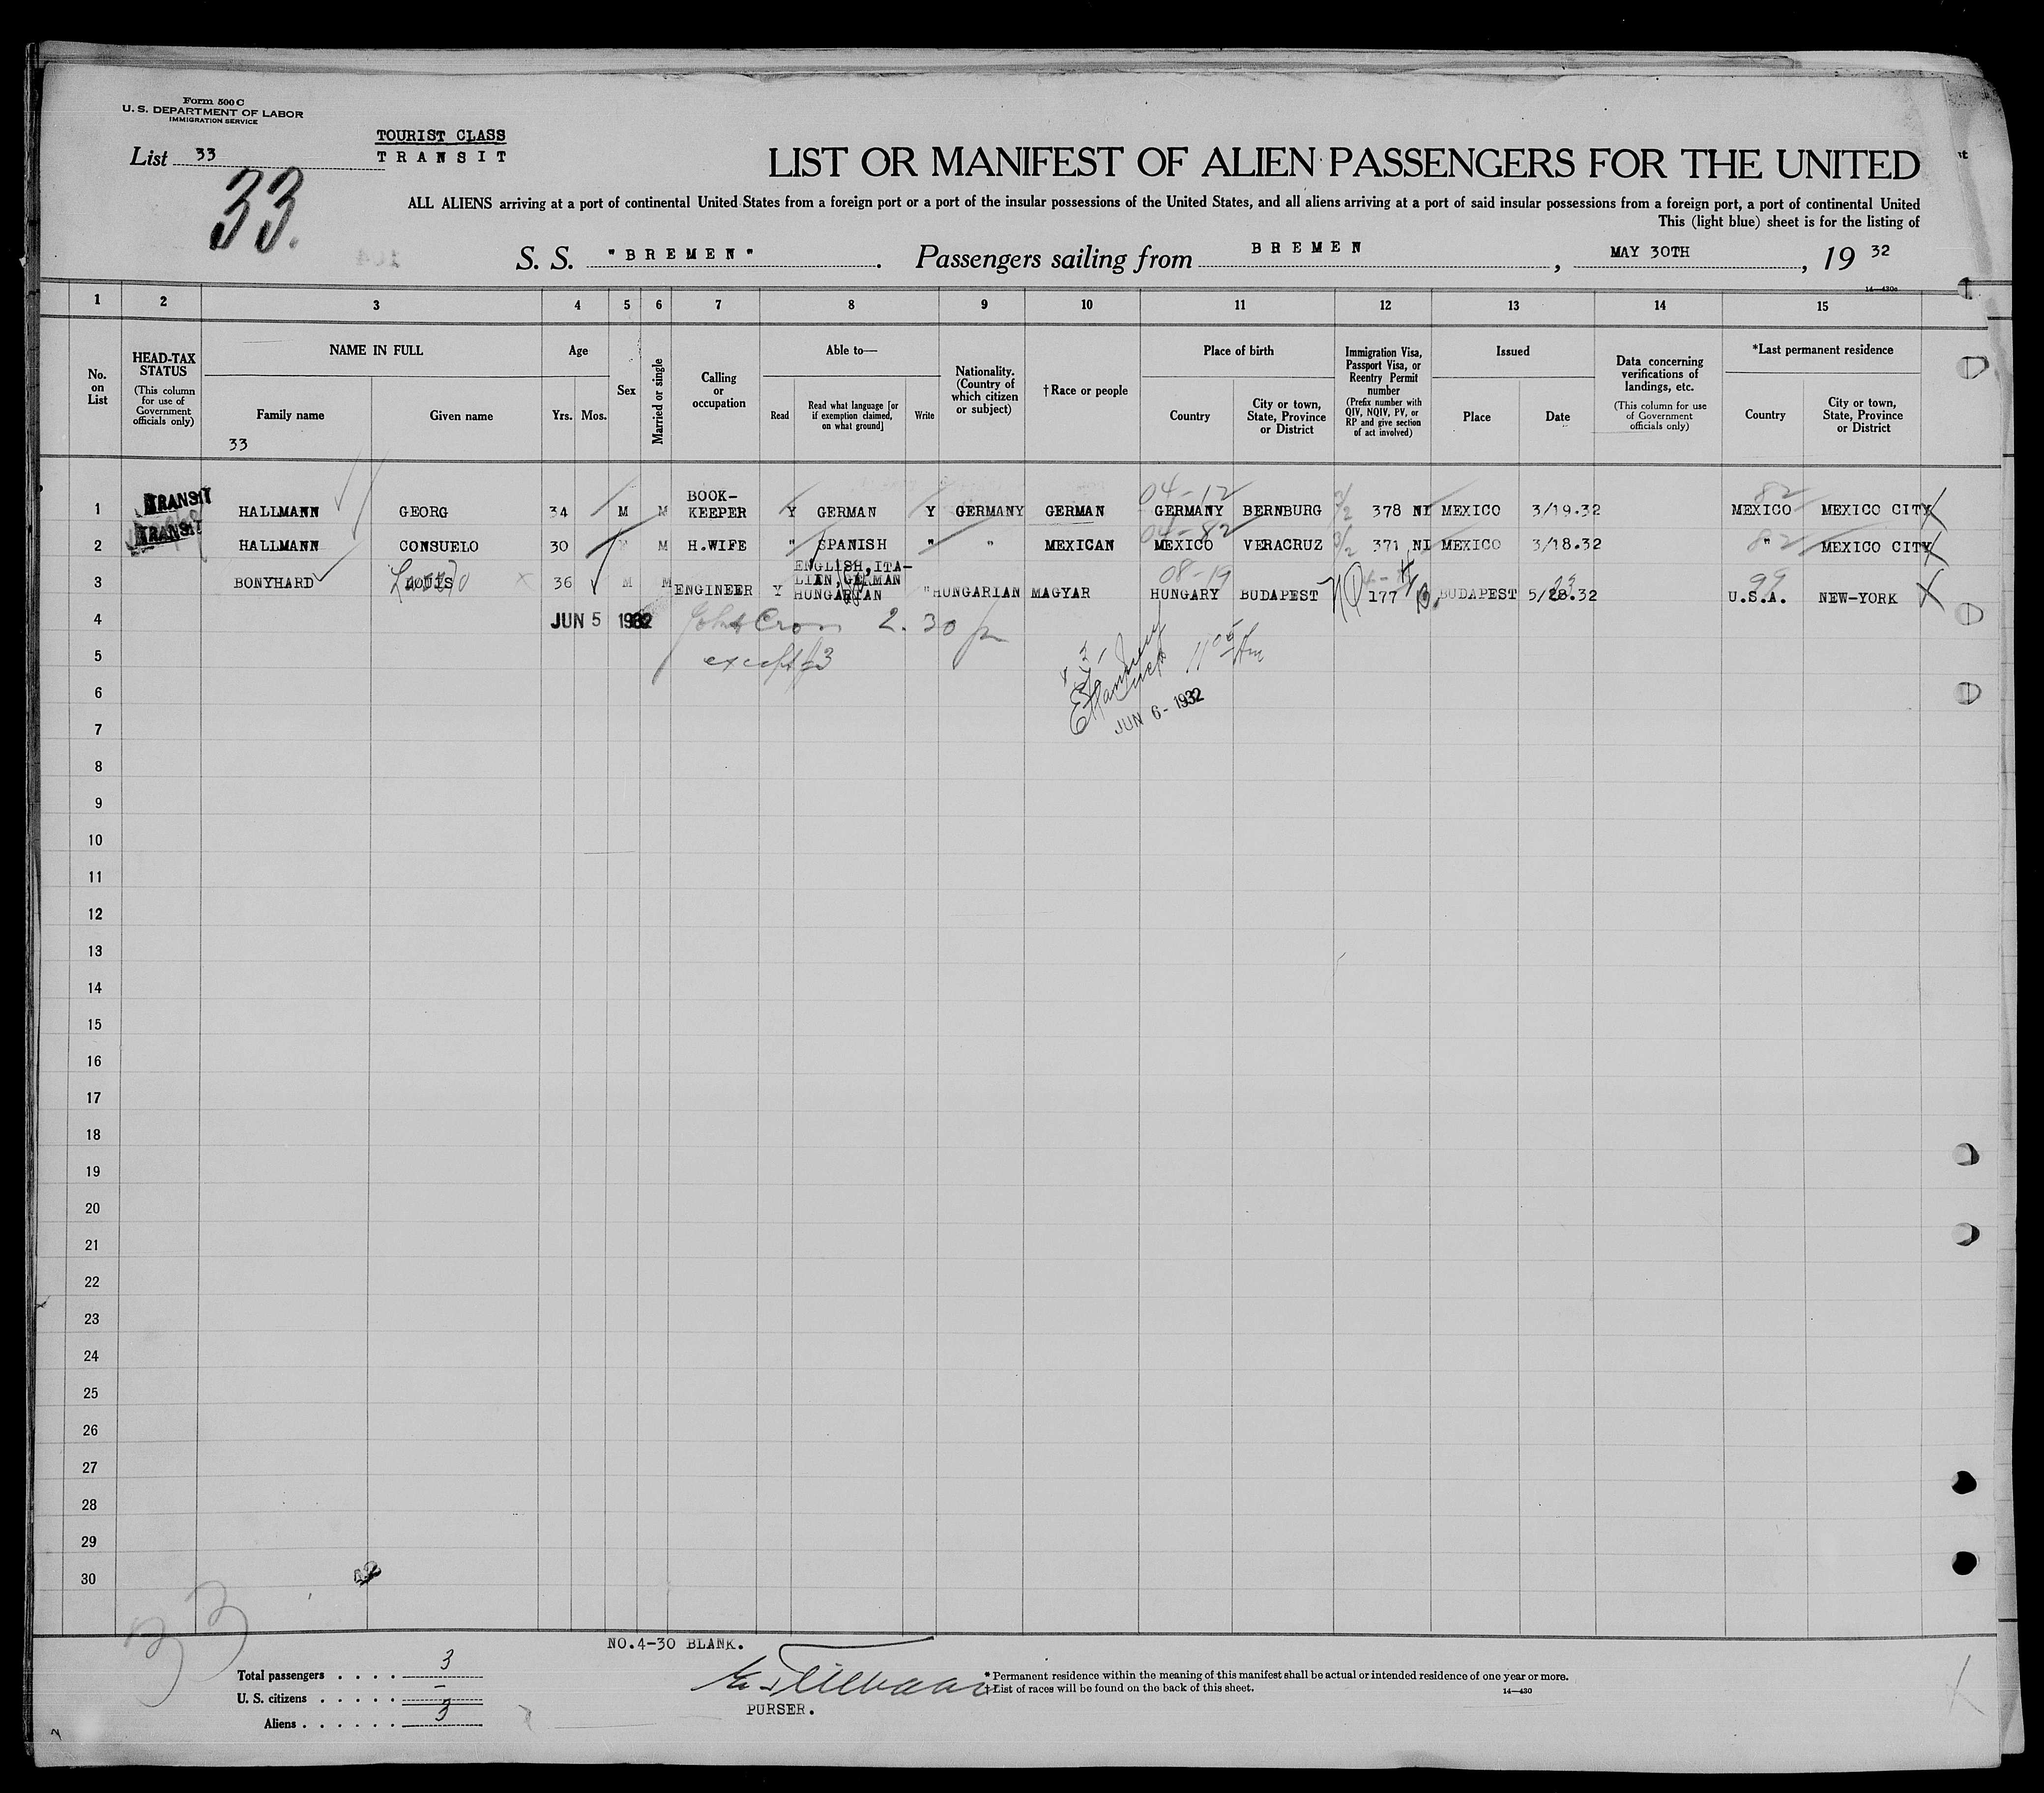 Form 500 C
U. S. DEPARTMENT OF LABOR
IMMIGRATION SERVICE
List 33
TOURIST CLASS
TRANSIT
33.
LIST OR MANIFEST OF ALIEN PASSENGERS FOR THE UNITED
ALL ALIENS arriving at a port of continental United States from a foreign port or a port of the insular possessions of the United States, and all aliens arriving at a port of said insular possessions from a foreign port, a port of continental United
This (light blue) sheet is for the listing of
S. S. "BREMEN". Passengers sailing from BREMEN, MAY 30TH, 19 32
1 2 3 4 5 6 7 8 9 10 11 12 13 14 15
No. on List
HEAD-TAX STATUS
(This column for use of Government officials only)
NAME IN FULL
Family name
Given name
33
Age
Yrs. Mos.
Sex
Married or single
Calling or occupation
Able to—
Read
Read what language [or if exemption claimed, on what ground]
Write
Nationality. (Country of which citizen or subject)
†Race or people
Place of birth
Country
City or town, State, Province or District
Immigration Visa, Passport Visa, or Reentry Permit number
(Prefix number with QIV, NQIV, PV, or RP and give section of act involved)
Issued
Place
Date
Data concerning verifications of landings, etc.
(This column for use of Government officials only)
*Last permanent residence
Country
City or town, State, Province or District
04-12 82
1 TRANSIT HALLMANN GEORG 34 M M BOOK-KEEPER Y GERMAN Y GERMANY GERMAN GERMANY BERNBURG 3/2 378 NI MEXICO 3/19.32 MEXICO MEXICO CITY
04-82 82
2 TRANSIT HALLMANN CONSUELO 30 F M H.WIFE " SPANISH " " MEXICAN MEXICO VERACRUZ 3/2 371 NI MEXICO 3/18.32 " MEXICO CITY
08-19 99
3 BONYHARD LOUIS 36 M M ENGINEER Y ENGLISH, ITALIAN, GERMAN HUNGARIAN " HUNGARIAN MAGYAR HUNGARY BUDAPEST 177 BUDAPEST 5/28.32 U.S.A. NEW-YORK
4 JUN 5 1932 2.30 p
5 except #3
6
7 JUN 6- 1932
8
9
10
11
12
13
14
15
16
17
18
19
20
21
22
23
24
25
26
27
28
29
30
33
NO.4-30 BLANK.
Total passengers . . . . 3
U. S. citizens . . . . . –
Aliens . . . . . . 3
PURSER.
* Permanent residence within the meaning of this manifest shall be actual or intended residence of one year or more.
† List of races will be found on the back of this sheet.
14—430